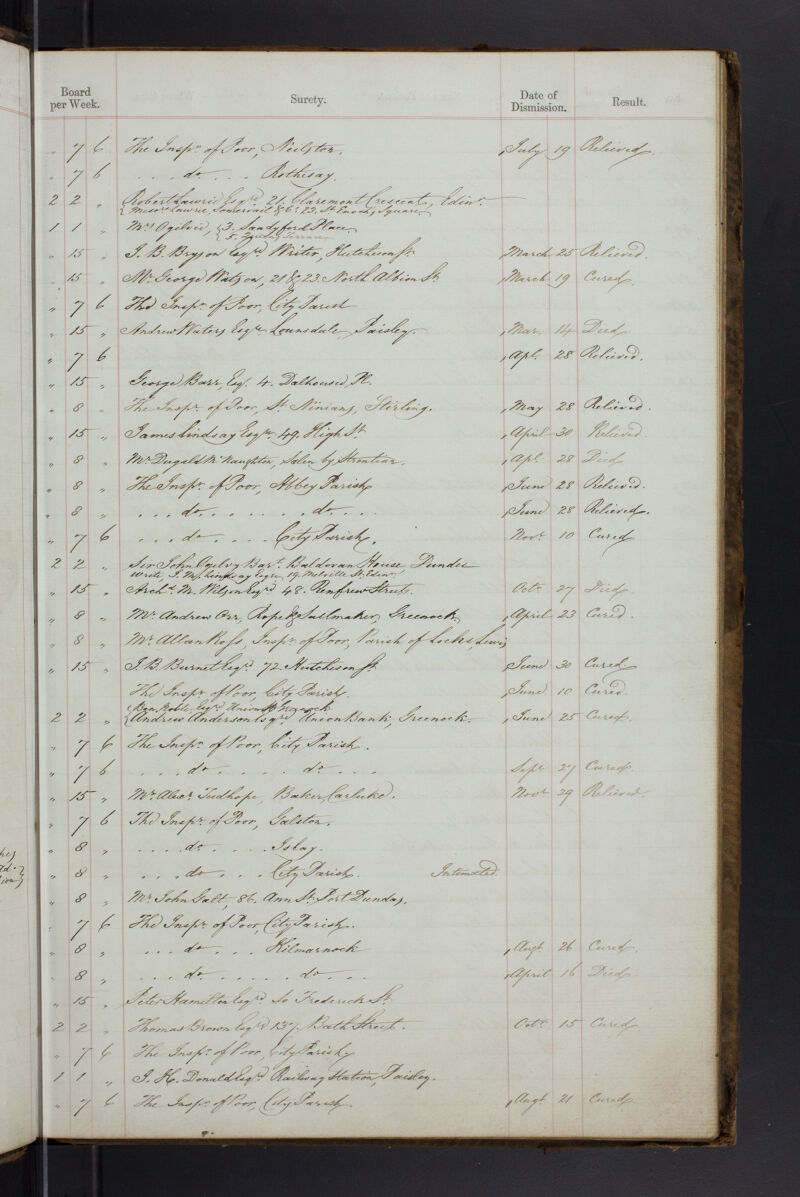 Board per Week. Surety. Date of Dismission. Result.
" 7 6 The Inspr. of Poor, Neilston. July 19 Relieved.
" 7 6 . . . do . . . Rothesay.
2 2 " Robert Lawrie Esqre. 21. Claremont Crescent, Edinr.
Messrs Lawrie, Somervail & Co. 23. St. Enoch Square.
1 1 " Mrs. Ogilvie, 3. Sandyford Place
5.
" 15 " J. B. Bryson Esqre. Writer, Hutcheson St. March 25 Relieved.
" 15 " Mr. George Watson, 21 & 23. North Albion St. March 19 Cured.
" 7 6 The Inspr. of Poor, City Parish
" 15 " Andrew Waters Esqre. Lounsdale, Paisley. Mar. 14 Died
" 7 6 Apl. 28 Relieved.
" 15 " George Barr, Esq. 4. Dalhousie Pl.
" 8 " The Inspr. of Poor, St. Ninians, Stirling. May 28 Relieved.
" 15 " James Lindsay Esqre. 49. High St. April 30 Relieved.
" 8 " Mr. Dugald McNaughton, Salen by Strontian. Apl. 28 Died
" 8 " The Inspr. of Poor, Abbey Parish June 28 Relieved.
" 8 " . . . do . . . . . . do . . . June 28 Relieved.
" 7 6 . . . do . . . . City Parish. Novr. 10 Cured
2 2 " Sir John Ogilvy Bart. Baldovan House Dundee
Write, J. M. Lindsay Esqre. 19. Melville St. Edinr.
" 15 " Archd. M. Wilson Esqre. 48. Renfrew Street. Octr. 27 Died
" 8 " Mr. Andrew Orr, Rope & Sailmaker, Greenock. April 23 Cured.
" 8 " Mr. Allan Ross, Inspr. of Poor, Parish of Lochs, Lewis
" 15 " J. B. Burnet Esqre. 72. Hutcheson St. June 30 Cured
The Inspr. of Poor, City Parish. June 10 Cured.
Noble, Esqre. Union St. Greenock
2 2 " Andrew Anderson Esqre. Union Bank, Greenock. June 25 Cured.
" 7 6 The Inspr. of Poor, City Parish.
" 7 6 . . . do . . . . . do . . . Sepr. 27 Cured.
" 15 " Mr. Alexr. Tudhope, Baker, Carluke. Novr. 29 Relieved.
" 7 6 The Inspr. of Poor, Galston.
" 8 " . . . . do . . . . Islay.
" 8 " . . . do . . . City Parish. Intimated.
" 8 " Mr. John Galt, 86. Ann St. Port Dundas.
" 7 6 The Inspr. of Poor, City Parish.
" 8 " . . . do . . . Kilmarnock Augt. 26 Cured.
" 8 " . . . do . . . . . do . . . April 16 Died.
" 15 " Peter Hamilton Esqre. Frederick St.
2 2 " Thomas Brown Esqre. 137. Bath Street. Octr. 15 Cured
" 7 6 The Inspr. of Poor, City Parish.
1 1 " J. K. Donald Esqre. Railway Station, Paisley.
" 7 6 The Inspr. of Poor, City Parish. Augt. 21 Cured